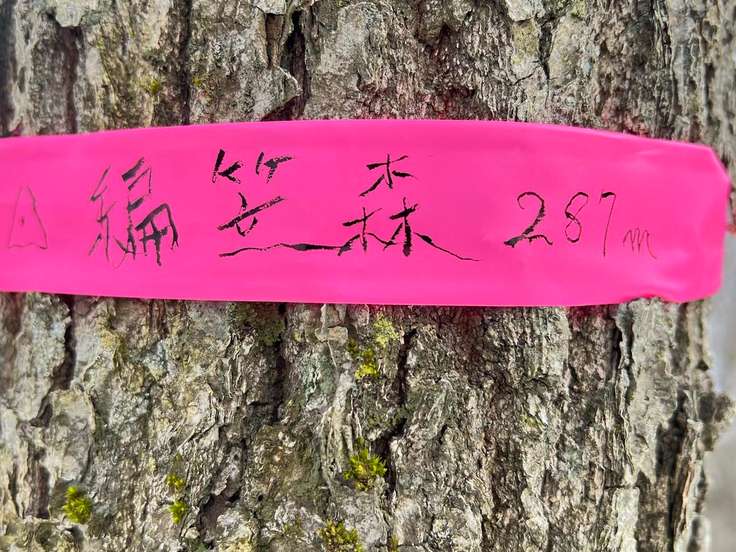 △編笠森 287m